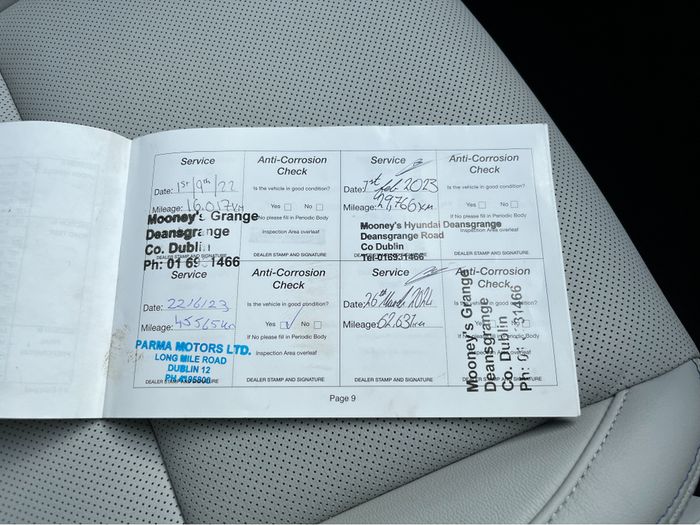 Service
Anti-Corrosion
Check
Date: 1st/9th/22
Is the vehicle in good condition?
Mileage: 16,017km
Yes No
If No please fill in Periodic Body
Inspection Area overleaf
Mooney's Grange
Deansgrange
Co. Dublin
Ph: 01 69 1466
DEALER STAMP AND SIGNATURE
DEALER STAMP AND SIGNATURE
Service
Anti-Corrosion
Check
Date: 1st Feb 2023
Is the vehicle in good condition?
Mileage: 29,766km
Yes No
If No please fill in Periodic Body
Inspection Area overleaf
Mooney's Hyundai Deansgrange
Deansgrange Road
Co Dublin
Tel-016931466
DEALER STAMP AND SIGNATURE
DEALER STAMP AND SIGNATURE
Service
Anti-Corrosion
Check
Date: 22/6/23
Is the vehicle in good condition?
Mileage: 45565km
Yes No
If No please fill in Periodic Body
Inspection Area overleaf
PARMA MOTORS LTD.
LONG MILE ROAD
DUBLIN 12
DEALER STAMP AND SIGNATURE
DEALER STAMP AND SIGNATURE
Service
Anti-Corrosion
Check
Date: 26th March 2024
Mileage: 62,631km
Yes No
Mooney's Grange
Deansgrange
Co. Dublin
Ph: 31466
DEALER STAMP AND SIGNATURE
DEALER STAMP AND SIGNATURE
Page 9